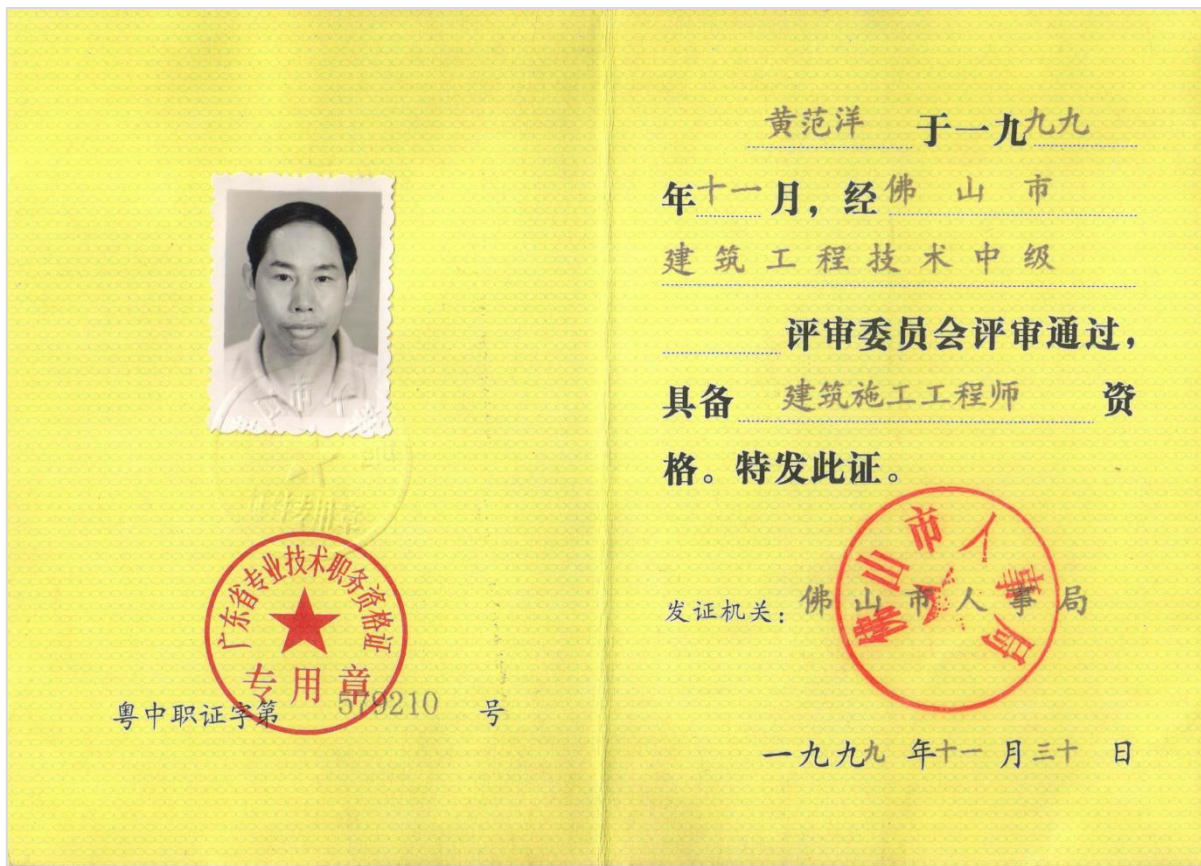 广东省专业技术职务资格证
专用章
粤中职证字第 579210 号
黄范洋 于一九九九
年十一月，经佛山市
建筑工程技术中级
评审委员会评审通过，
具备 建筑施工工程师 资
格。特发此证。
佛山市人事局
发证机关：佛山市人事局
一九九九年十一月三十日